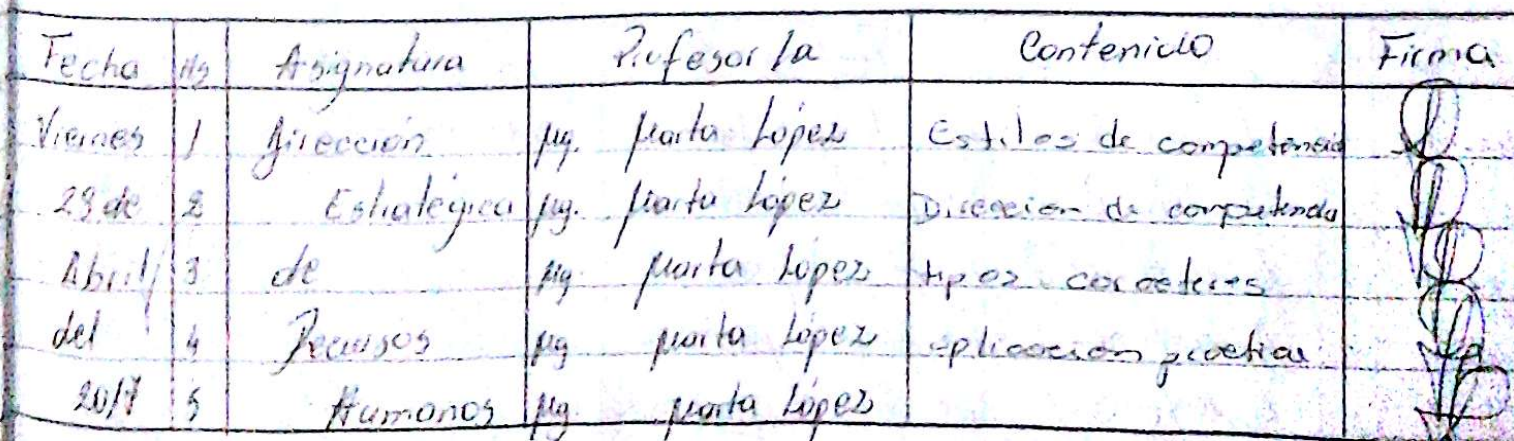 Fecha Hs Asignatura Profesor/a Contenido Firma
Viernes 1 Dirección Mg. Marta López Estilos de competencia
29 de 2 Estratégica Mg. Marta López Dirección de competencia
Abril 3 de Mg. Marta López tipos caracteres
del 4 Recursos Mg Marta López aplicación practica
2017 5 Humanos Mg. Marta López